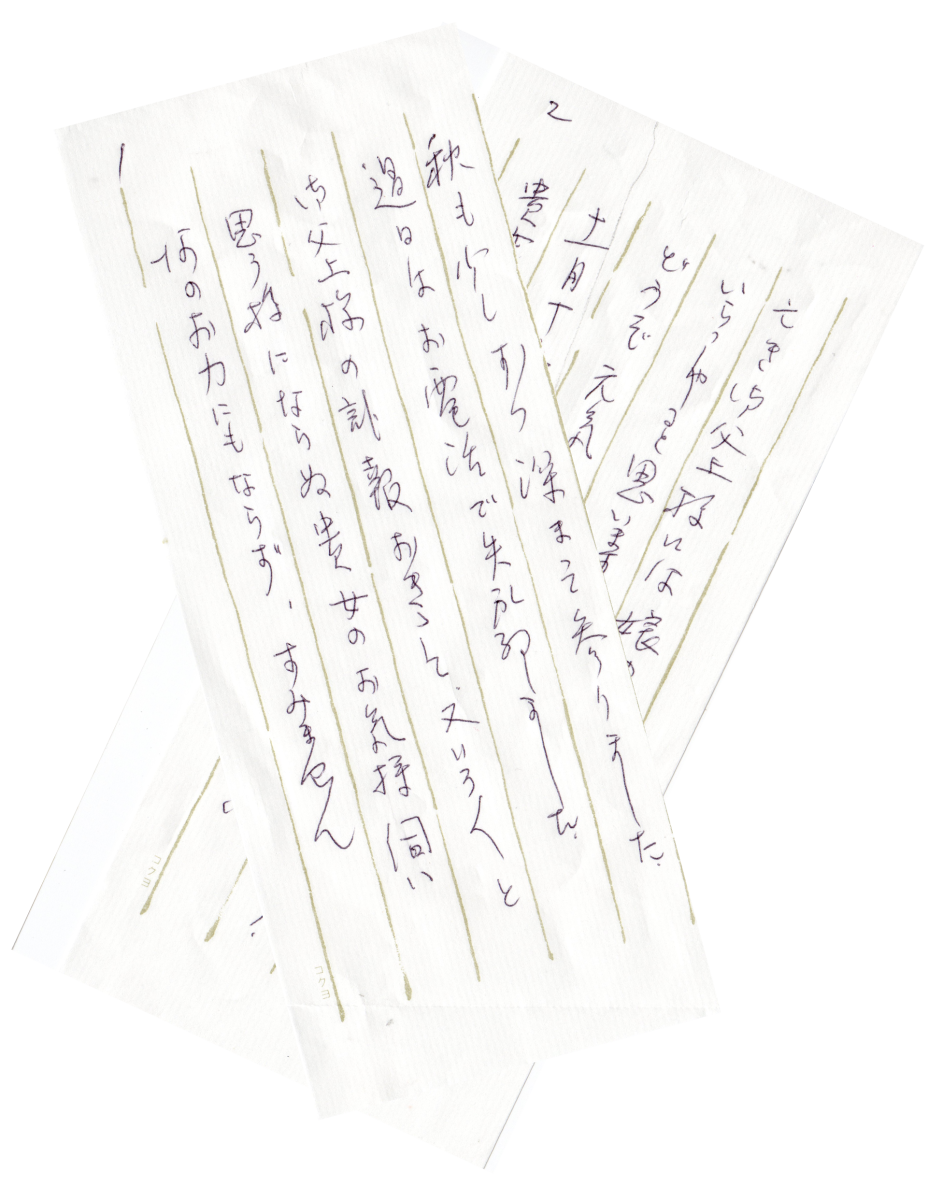 1
秋も少しずつ深まって参りました
過日はお電話で失礼致しました
御父上様の訃報おきゝして、又いろ〳〵と
思う様にならぬ貴女のお気持伺い
何のお力にもならず、すみません
2
亡き御父上様には娘
いらっしゃると思います
どうぞ元気
十一月十
貴女